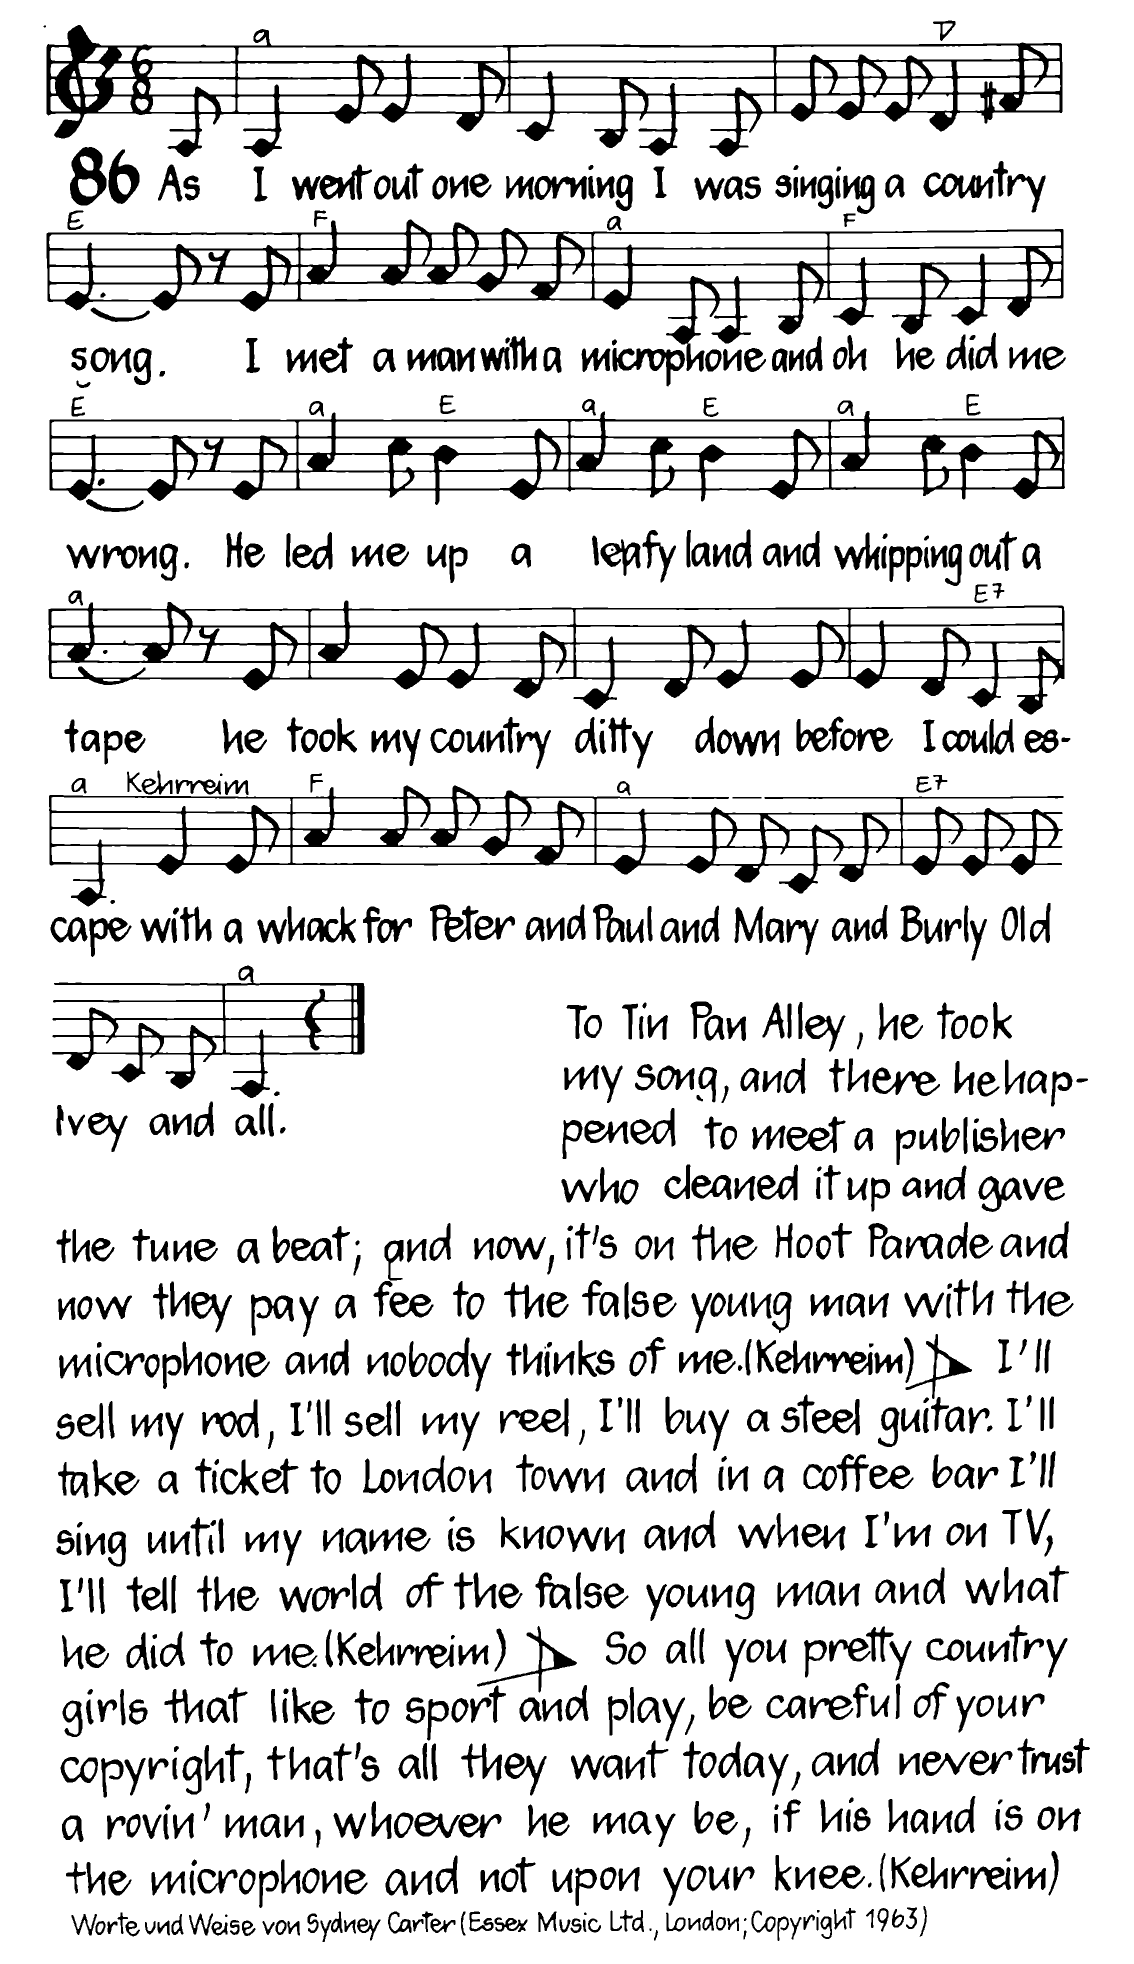 a D
6
8
86 As I went out one morning I was singing a country
E F a F
song. I met a man with a microphone and oh he did me
E a E a E a E
wrong. He led me up a leafy land and whipping out a
a E7
tape he took my country ditty down before I could es-
a Kehrreim F a E7
cape with a whack for Peter and Paul and Mary and Burly Old
a
Ivey and all.
To Tin Pan Alley, he took
my song, and there he hap-
pened to meet a publisher
who cleaned it up and gave
the tune a beat; and now, it's on the Hoot Parade and
now they pay a fee to the false young man with the
microphone and nobody thinks of me.(Kehrreim) I'll
sell my rod, I'll sell my reel, I'll buy a steel guitar. I'll
take a ticket to London town and in a coffee bar I'll
sing until my name is known and when I'm on TV,
I'll tell the world of the false young man and what
he did to me.(Kehrreim) So all you pretty country
girls that like to sport and play, be careful of your
copyright, that's all they want today, and never trust
a rovin' man, whoever he may be, if his hand is on
the microphone and not upon your knee.(Kehrreim)
Worte und Weise von Sydney Carter (Essex Music Ltd., London; Copyright 1963)